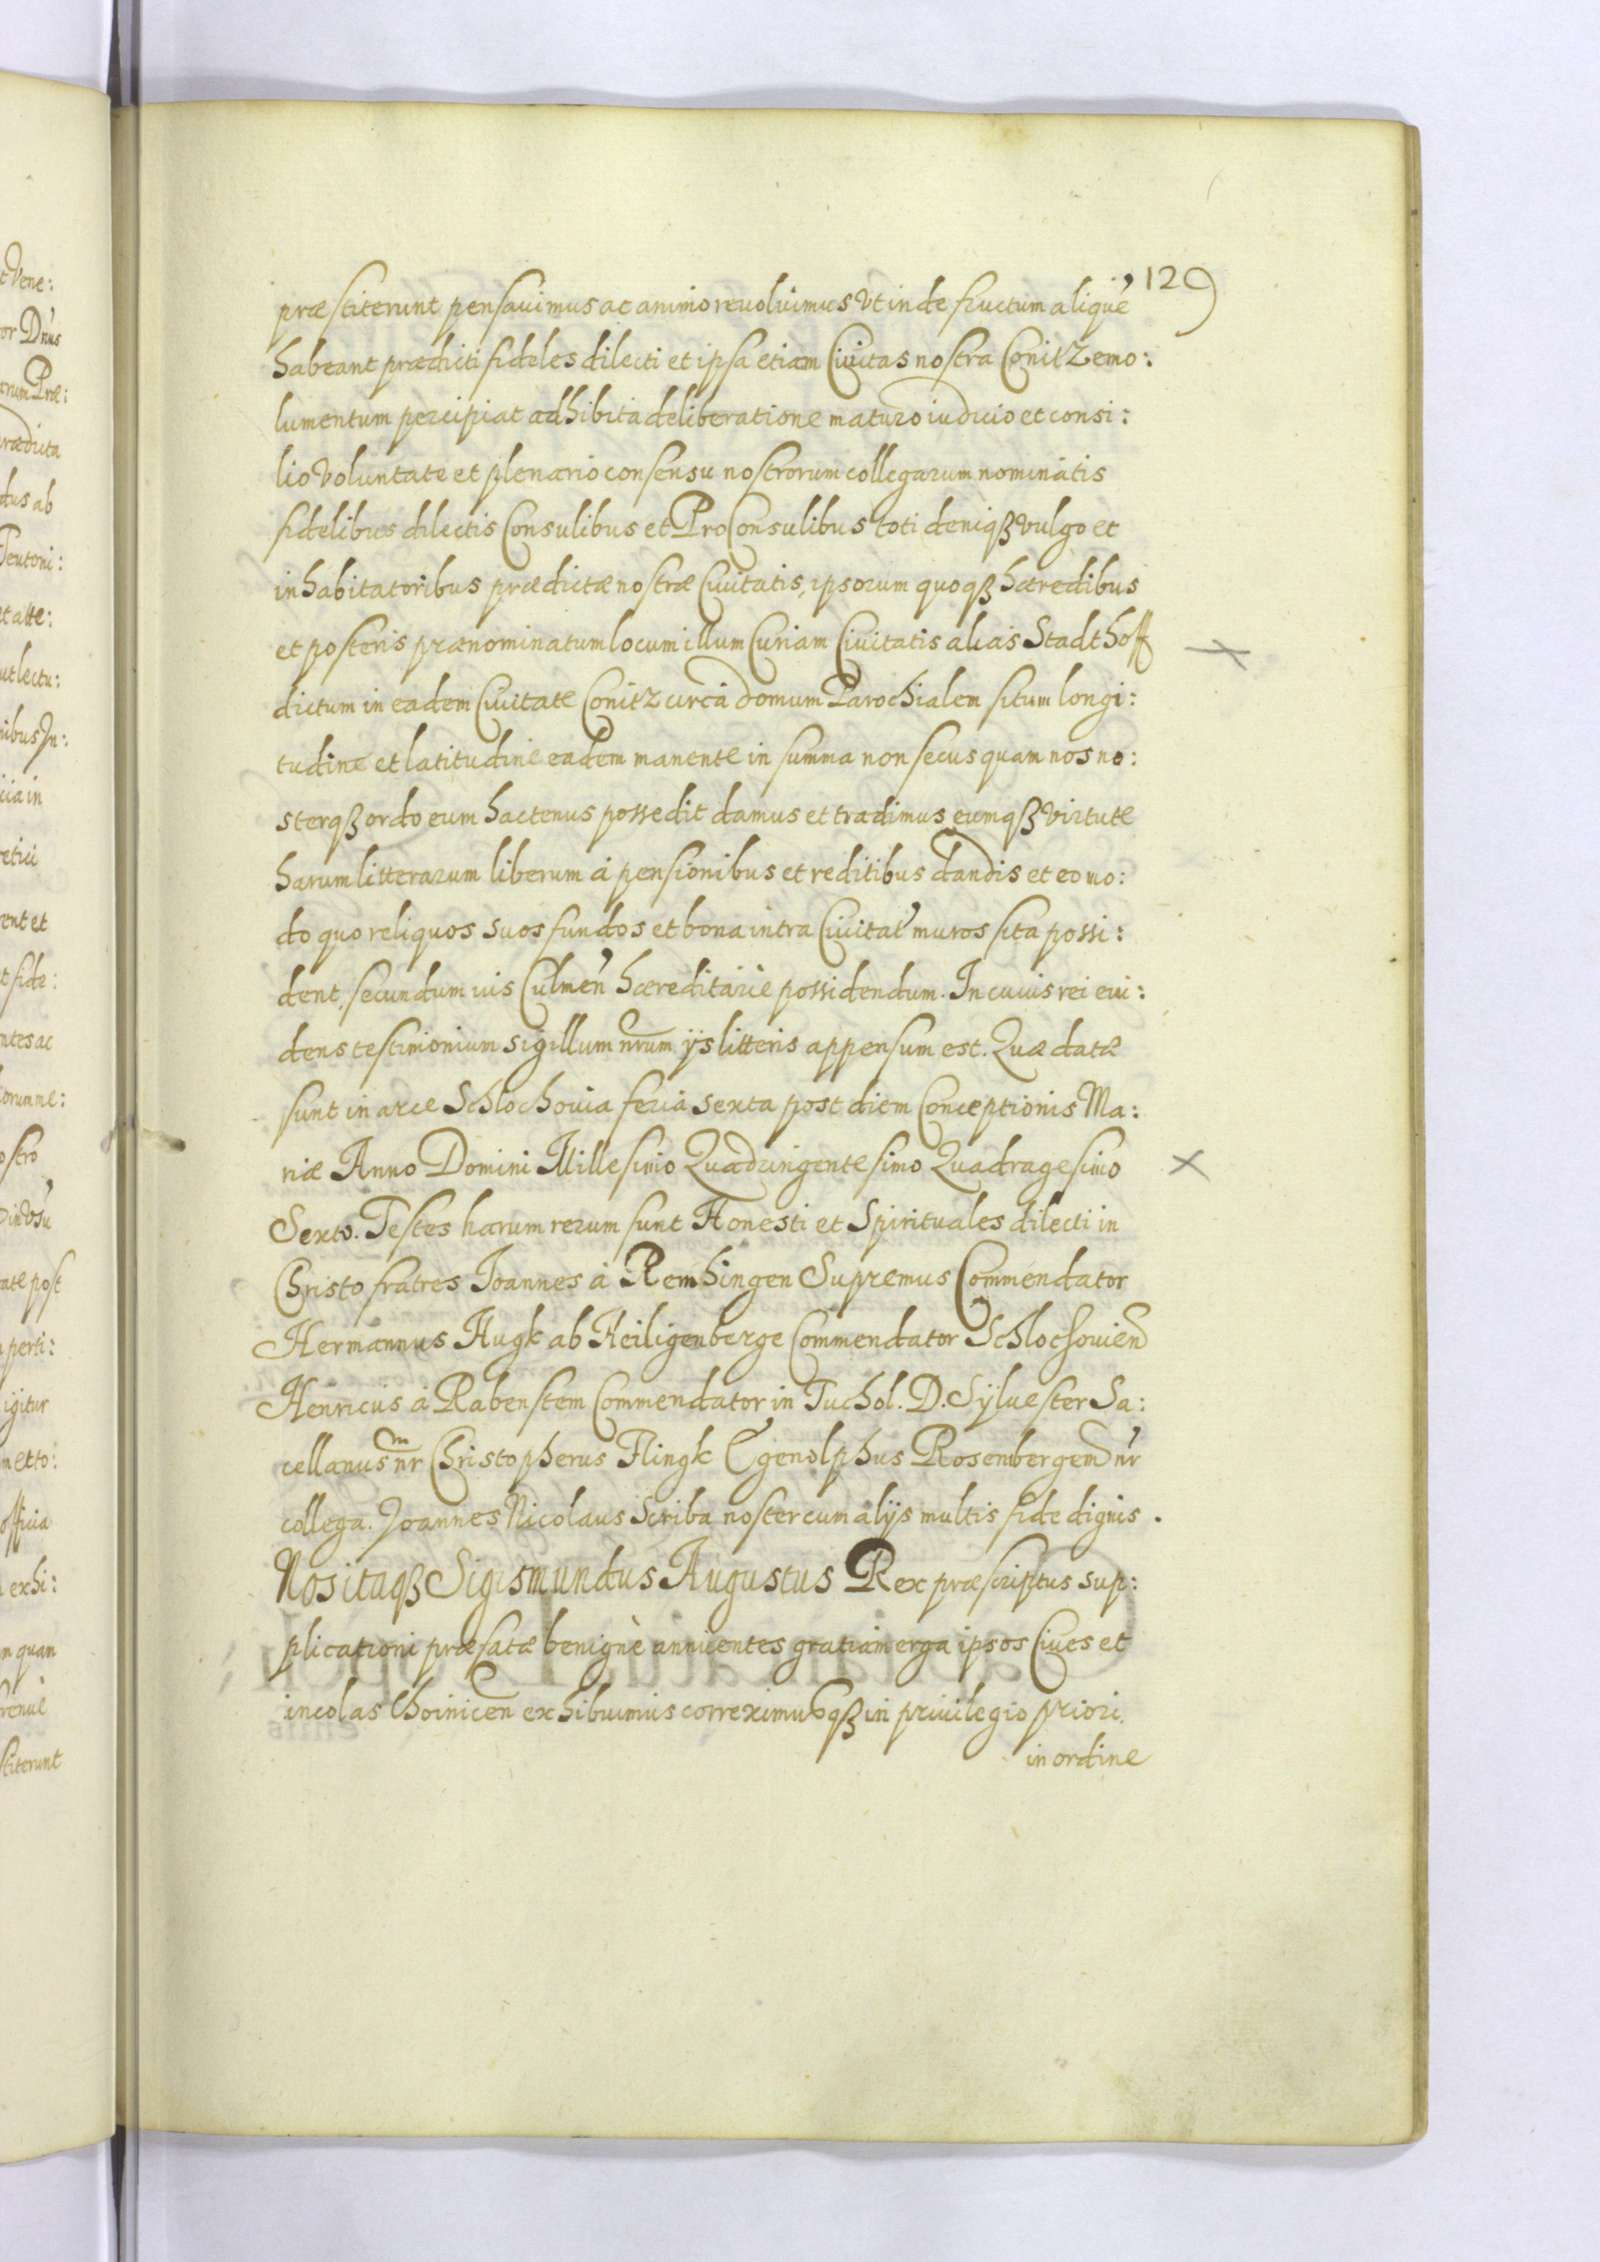 129
præstiterunt pensauimus ac animo reuoluimus Vt inde fructum aliquē
habeant prædicti fideles dilecti et ipsa etiam Ciuitas nostra Conitz emo:
lumentum percipiat adhibita deliberatione maturo iudicio et consi:
lio Voluntate et plenario consensu nostrorum collegarum nominatis
fidelibus dilectis Consulibus et ProConsulibus toti deniqȝ vulgo et
inhabitatoribus prædictæ nostræ Ciuitatis, ipsorum quoqȝ hæredibus
et posteris prænominatum locum illum Curiam Ciuitatis alias Stadthoff
dictum in eadem Ciuitate Conitz circa domum Parochialem situm longi:
tudine et latitudine eadem manente in summa non secus quam nos no:
sterqȝ ordo eum hactenus possedit damus et tradimus eumqȝ virtute
harum litterarum liberum à pensionibus et reditibus dandis et eo mo:
do quo reliquos suos fundos et bona intra Ciuitat' muros sita possi:
dent, secundum ius Culmen̄ hæreditariè possidendum. In cuius rei eui:
dens testimonium sigillum nr̄um ijs litteris appensum est. Quæ datæ
sunt in arce Schlochouia feria sexta post diem Conceptionis Ma:
riæ Anno Domini Millesimo Quadringentesimo Quadragesimo
Sexto. Testes harum rerum sunt Honesti et Spirituales dilecti in
Christo fratres Joannes à Remhingen Supremus Commendator
Hermannus Hugk ab Heiligenberge Commendator Schlochouien̄
Henricus à Rabenstem Commendator in Tuchol. D. Syluester Sa:
cellanus nr̄ Christopherus Flingk Egenolphus Rosembergem nr̄
collega. Joannes Nicolaus Scriba noster cum alijs multis fide dignis.
Nos itaqȝ Sigismundus Augustus Rex præscriptus sup:
plicationi præfatæ benignè annuentes gratiam erga ipsos Ciues et
incolas Choinicen̄ exhibuimus correximusqȝ in priuilegio priori
in ordine